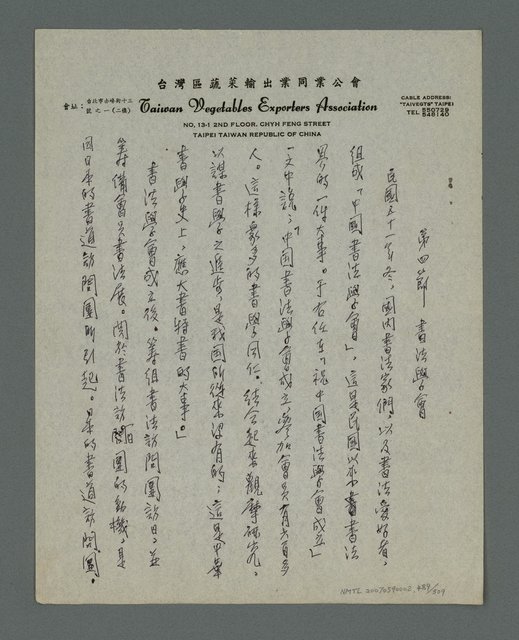 台灣區蔬菜輸出業同業公會
會址：台北市赤峰街十三號之一(二樓)
Taiwan Vegetables Exporters Association
NO, 13-1 2ND FLOOR. CHYH FENG STREET
TAIPEI TAIWAN REPUBLIC OF CHINA
CABLE ADDRESS:
"TAIVEGTS" TAIPEI
TEL 550729
546140
第四節 書法學會
民國五十一年冬，國內書法家們，以及書法愛好者，
組成「中國書法學會」，這是民國以來書法
界的一件大事。于右任在「祝中國書法學會成立」
一文中說：「中國書法學會成立參加會員有六百多
人。這樣眾多的書學同仁。結合起來觀摩研究，
以謀書學之進步，是我國所從來沒有的；這是中華
書學史上，應大書特書的大事。」
書法學會成立後。籌組書法訪問團訪日，並
籌備會員書法展。關於書法訪問團的動機，是
因日本的書道訪問團所引起。日本的書道訪問團。
NMTL 20070590002, 484/509